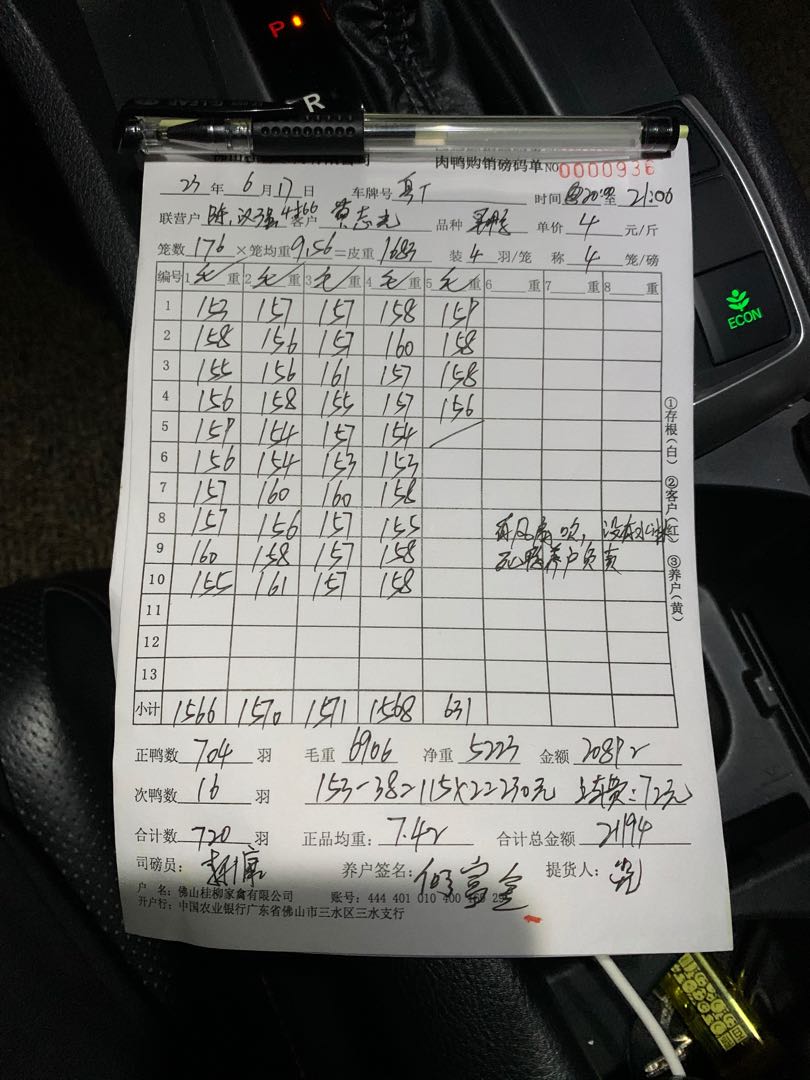 P
R
肉鸭购销磅码单 NO 0000936
23 年 6 月 17 日 车牌号 粤T 时间 至 21:00
联营户 陈汉强 客户 黄志光 品种 单价 4 元/斤
笼数 176 ×笼均重 9.56 =皮重 1683 装 4 羽/笼 称 4 笼/磅
编号 1 毛 重 2 毛 重 3 毛 重 4 毛 重 5 毛 重 6 重 7 重 8 重
1 153 157 157 158 157
2 158 156 157 160 158
3 155 156 161 157 158
4 156 158 155 157 156
5 157 154 157 154
6 156 154 153 153
7 157 160 160 158
8 157 156 157 155
9 160 158 157 158
10 155 161 157 158
11
12
13
有风扇吹,没有水淋
死鸭养户负责
小计 1566 1570 1571 1568 631
正鸭数 704 羽 毛重 6906 净重 5223 金额 20892
次鸭数 16 羽 153-38=115×2=230元 72元
合计数 720 羽 正品均重: 7.42 合计总金额 21194
司磅员: 养户签名: 提货人:
户 名: 佛山桂柳家禽有限公司 账号: 444 401 010 400
开户行: 中国农业银行广东省佛山市三水区三水支行
①存根(白) ②客户(红) ③养户(黄)
ECON